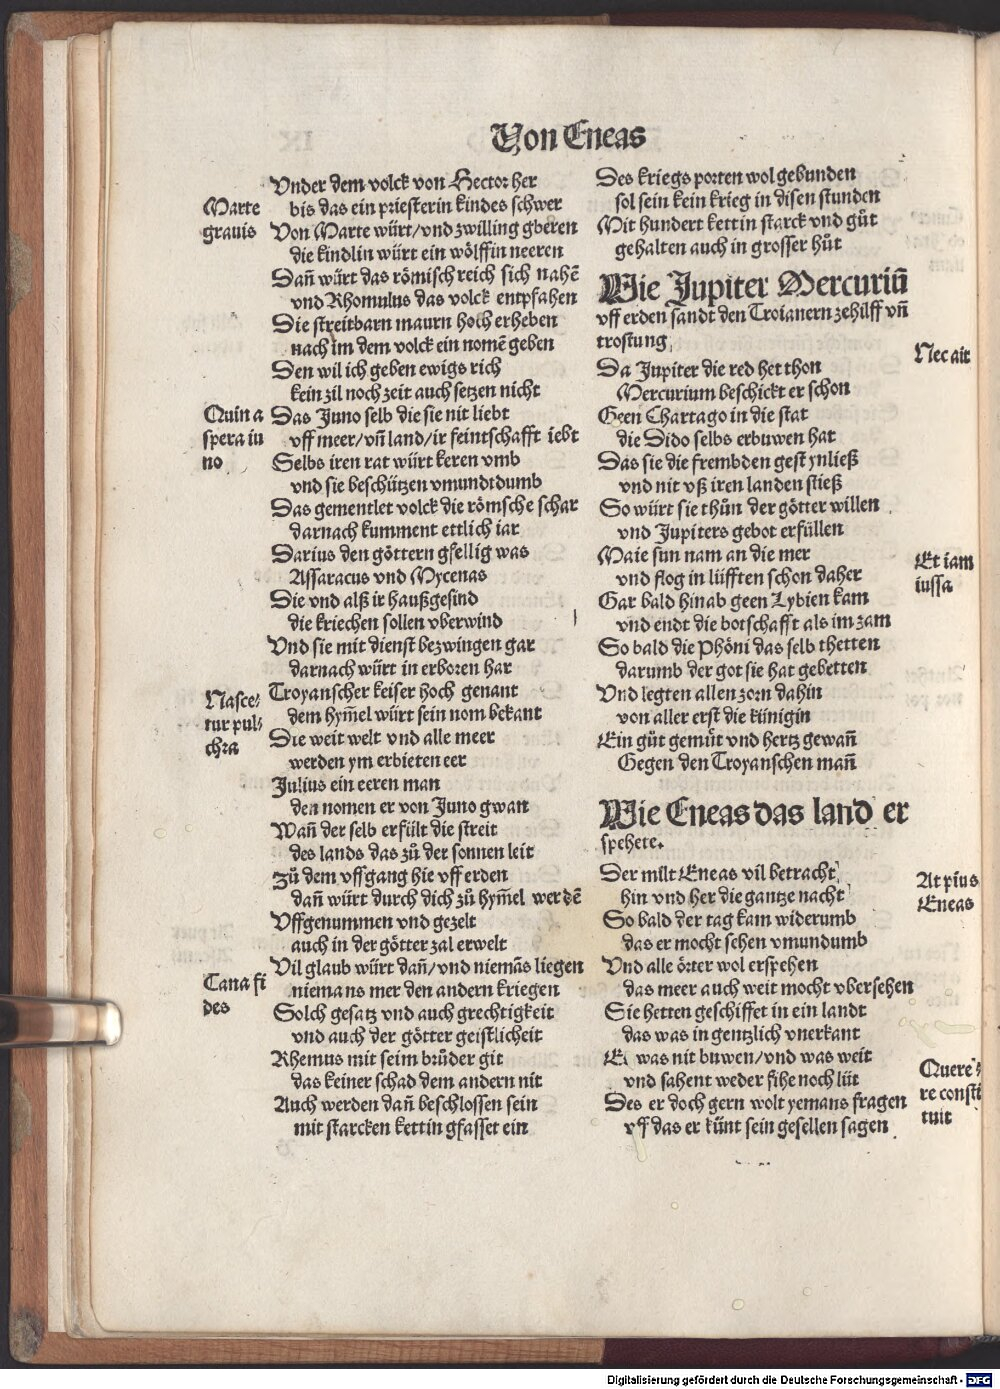 Von Eneas
Vnder dem volck von Hector her
bis das ein priesterin kindes schwer
Marte
grauis
Von Marte würt/vnd zwilling gberen
die kindlin würt ein wölffin neeren
Dañ würt das römisch reich sich nahē
vnd Rhomulus das volck entpfahen
Die streitbarn maurn hoch erheben
nach im dem volck ein nomē geben
Den wil ich geben ewigs rich
kein zil noch zeit auch setzen nicht
Quin a
spera iu
no
Das Juno selb die sie nit liebt
vff meer/vñ land/ir feintschafft iebt
Selbs iren rat würt keren vmb
vnd sie beschützen vmundtdumb
Das gementlet volck die römsche schar
darnach kumment ettlich iar
Darius den göttern gfellig was
Assaracus vnd Mycenas
Die vnd alß ir haußgesind
die kriechen sollen vberwind
Vnd sie mit dienst bezwingen gar
darnach würt in erboren har
Nasce⸗
tur pul⸗
chra
Troyanscher keiser hoch genant
dem hym̄el würt sein nom bekant
Die weit welt vnd alle meer
werden ym erbieten eer
Julius ein eeren man
den nomen er von Juno gwan
Wañ der selb erfült die streit
des lands das zů der sonnen leit
Zů dem vffgang hie vff erden
dañ würt durch dich zů hym̄el werdē
Vffgenummen vnd gezelt
auch in der götter zal erwelt
Cana fi
des
Vil glaub würt dañ/vnd niemās liegen
niemans mer den andern kriegen
Solch gesatz vnd auch grechtigkeit
vnd auch der götter geistlicheit
Rhemus mit seim brůder git
das keiner schad dem andern nit
Auch werden dañ beschlossen sein
mit starcken kettin gfasset ein
Des kriegs porten wol gebunden
sol sein kein krieg in disen stunden
Mit hundert kettin starck vnd gůt
gehalten auch in grosser hůt
Wie Jupiter Mercuriū
vff erden sandt den Troianern zehilff vñ
trostung
Nec ait
Da Jupiter die red het thon
Mercurium beschickt er schon
Geen Chartago in die stat
die Dido selbs erbuwen hat
Das sie die frembden gest ynließ
vnd nit vß iren landen stieß
So würt sie thůn der götter willen
vnd Jupiters gebot erfüllen
Et iam
iussa
Maie sun nam an die mer
vnd flog in lüfften schon daher
Gar bald hinab geen Lybien kam
vnd endt die botschafft als im zam
So bald die Phöni das selb thetten
darumb der got sie hat gebetten
Vnd legten allen zorn dahin
von aller erst die künigin
Ein gůt gemüt vnd hertz gewañ
Gegen den Troyanschen mañ
Wie Eneas das land er
spehete.
At pius
Eneas
Der milt Eneas vil betracht
hin vnd her die gantze nacht
So bald der tag kam widerumb
das er mocht sehen vmundumb
Vnd alle örter wol erspehen
das meer auch weit mocht vbersehen
Sie hetten geschiffet in ein landt
das was in gentzlich vnerkant
Quere⸗
re consti
tuit
was nit buwen/vnd was weit
vnd sahent weder fihe noch lüt
Des er doch gern wolt yemans fragen
vff das er künt sein gesellen sagen
Digitalisierung gefördert durch die Deutsche Forschungsgemeinschaft - DFG